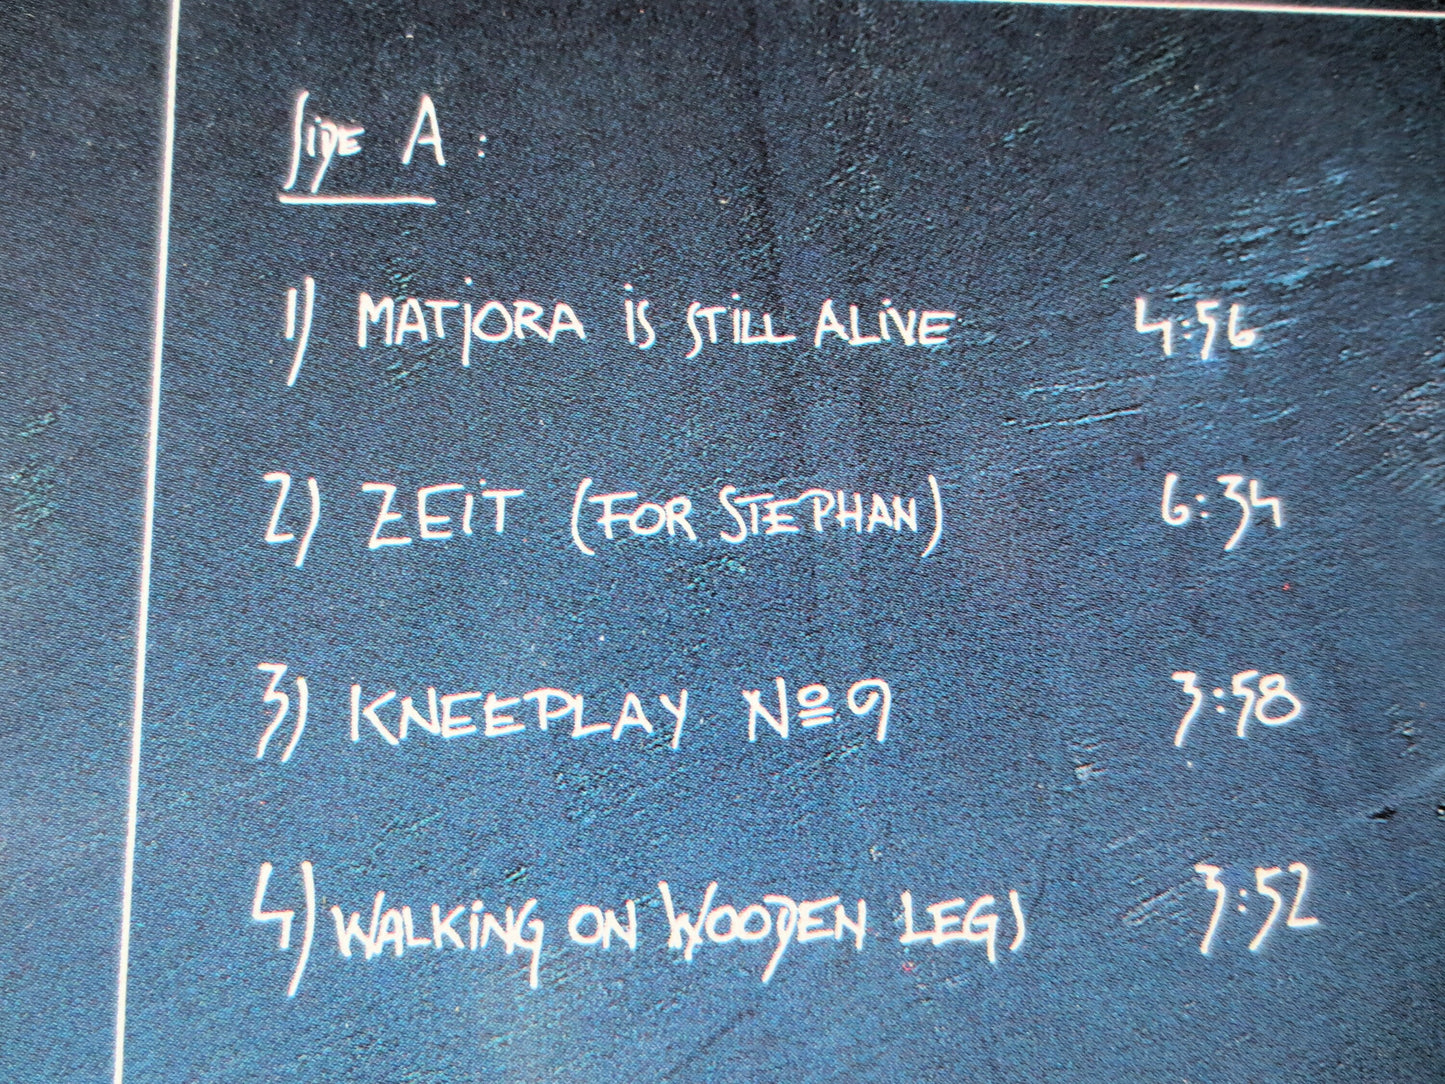 Side A:
1) MATJORA iS STiLL ALiVE 4:56
2) ZEiT (FOR STEPHAN) 6:34
3) KNEEPLAY Nº 9 3:58
4) WALKiNG ON WOODEN LEGS 3:52